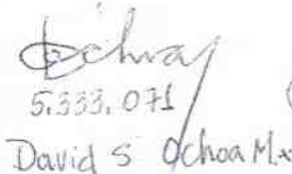 Ochoa
5.333.071
David S Ochoa M.